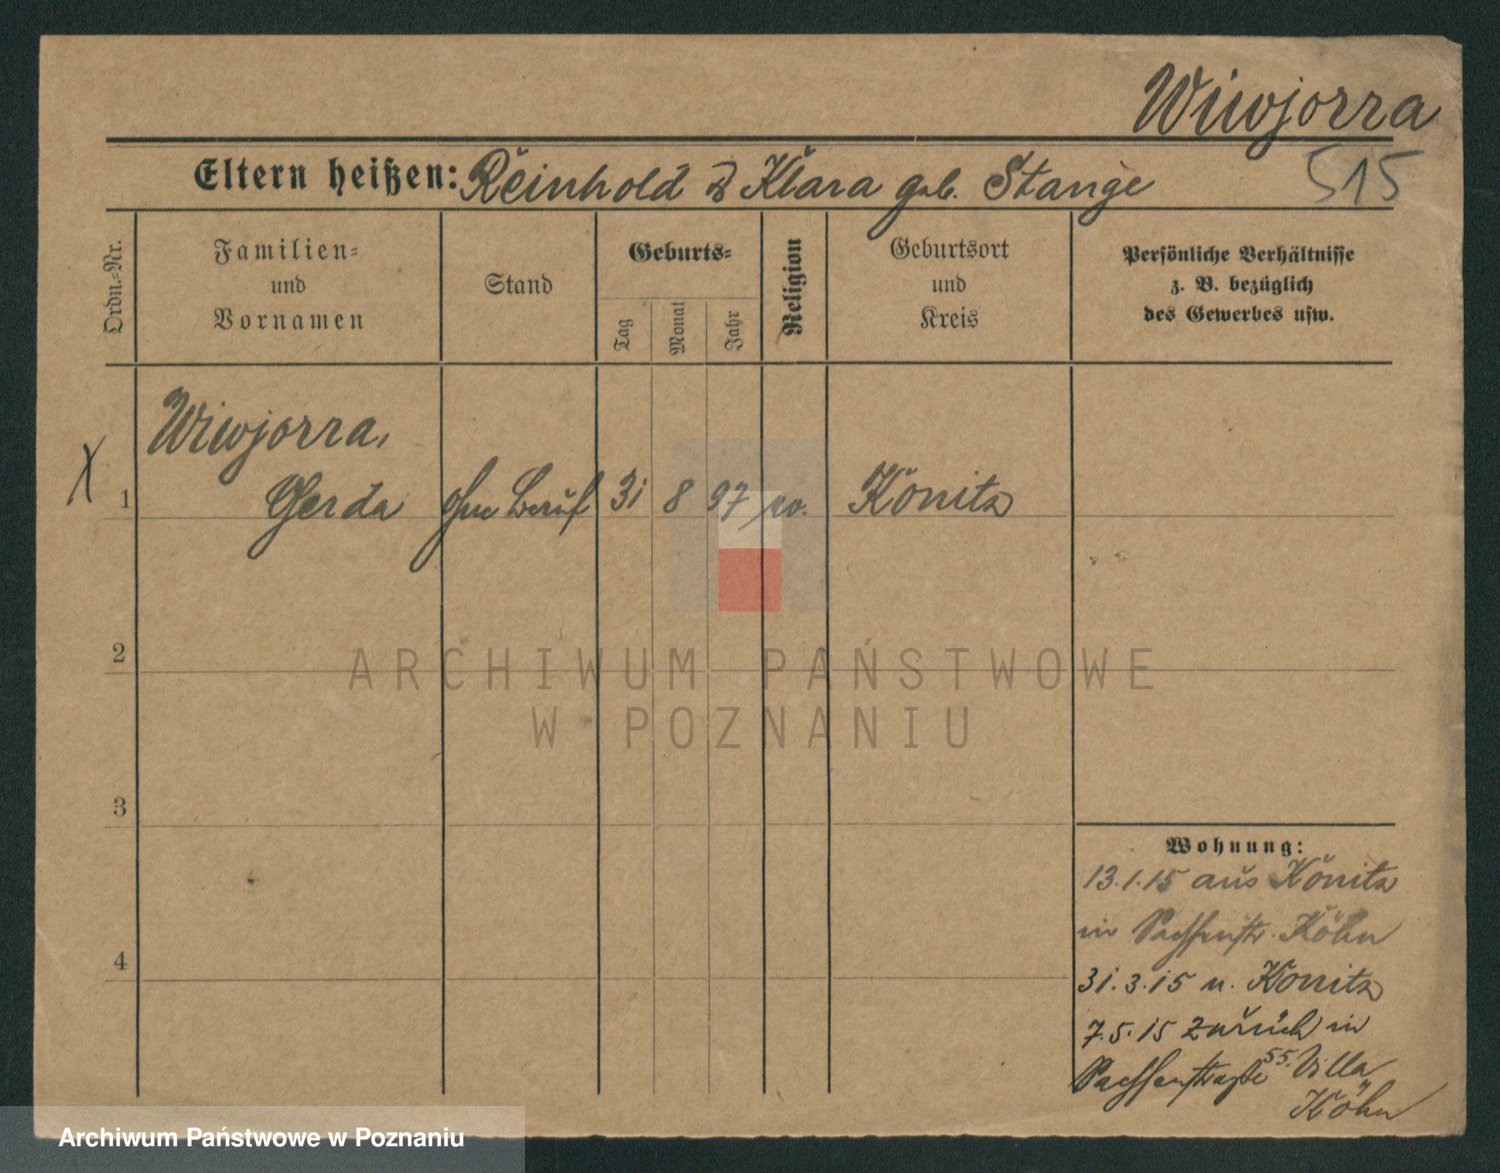 Wiwjorra
Eltern heißen: Reinhold & Klara geb. Stange
515
Ordn.-Nr.
Familien-
und
Vornamen
Stand
Geburts-
Tag
Monat
Jahr
Religion
Geburtsort
und
Kreis
Persönliche Verhältnisse
z. B. bezüglich
des Gewerbes usw.
Wiwjorra,
X 1 Gerda ohne Beruf 31 8 97 Konitz
2
ARCHIWUM PAŃSTWOWE
W POZNANIU
3
Wohnung:
13.1.15 aus Konitz
in Sachsenstr. Köhn
4
31.3.15 n. Konitz
7.5.15 zurück in
Sachsenstraße 55. Villa
Köhn
Archiwum Państwowe w Poznaniu